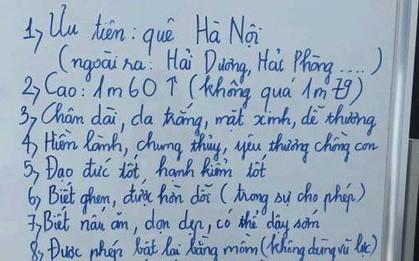 1, Ưu tiên: quê Hà Nội
(ngoài ra: Hải Dương, Hải Phòng .....)
2, Cao: 1m60 ↑ (không quá 1m79)
3, Chân dài, da trắng, mặt xinh, dễ thương
4, Hiền lành, chung thủy, yêu thương chồng con
5, Đạo đức tốt, hạnh kiểm tốt
6, Biết ghen, được hờn dỗi (trong sự cho phép)
7, Biết nấu ăn, dọn dẹp, có thể dậy sớm
8, Được phép bật lại bằng mồm (không dùng vũ lực)